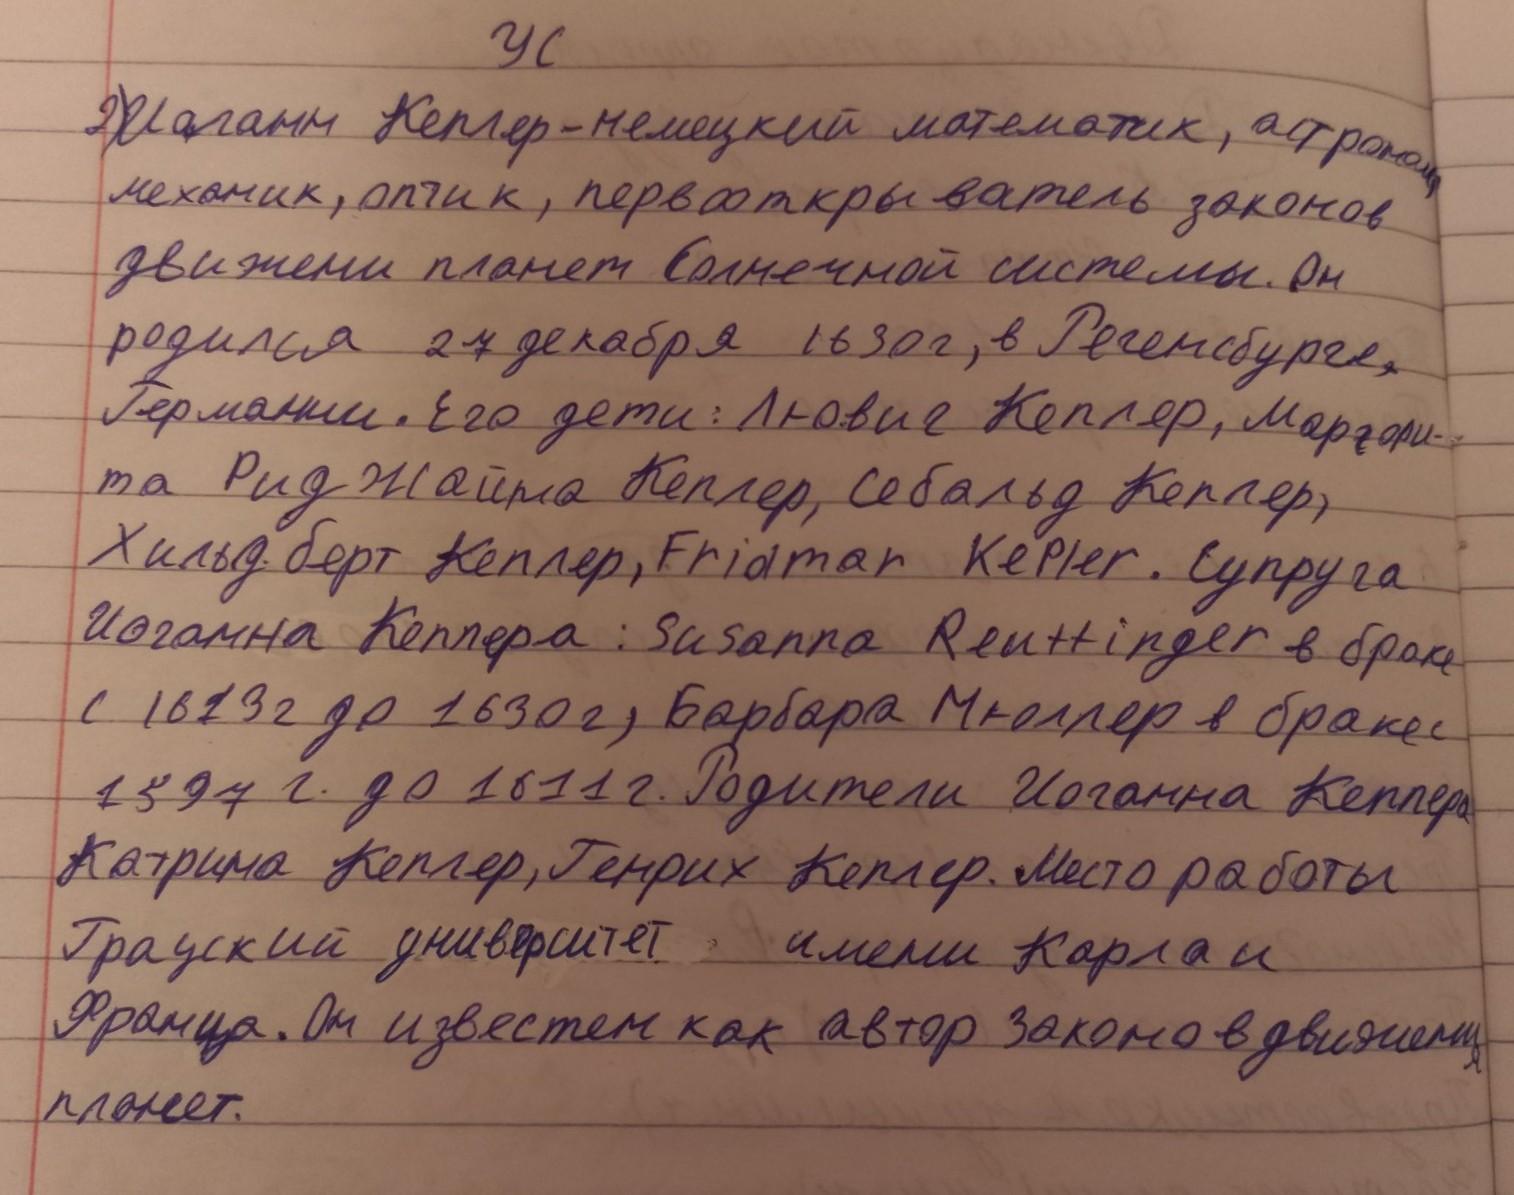 УС
2) Иоганн Кеплер-немецкий математик, астроном,
механик, оптик, первооткрыватель законов
движени планет Солнечной системы. Он
родился 27 декабря 1630г, в Регенсбурге,
Германии. Его дети: Лювиг Кеплер, Маргари-
та Риджайна Кеплер, Себальд Кеплер,
Хильдберт Кеплер, Fridmar Kepler. Супруга
Иоганна Кеплера: Susanna Reuttinger в браке
с 1613г до 1630г, Барбара Мюллер в браке с
1597 г. до 1611г. Родители Иоганна Кеплера
Катрина Кеплер, Генрих Кеплер. Место работы
Грацский университет имени Карла и
Франца. Он известен как автор законов движения
планет.